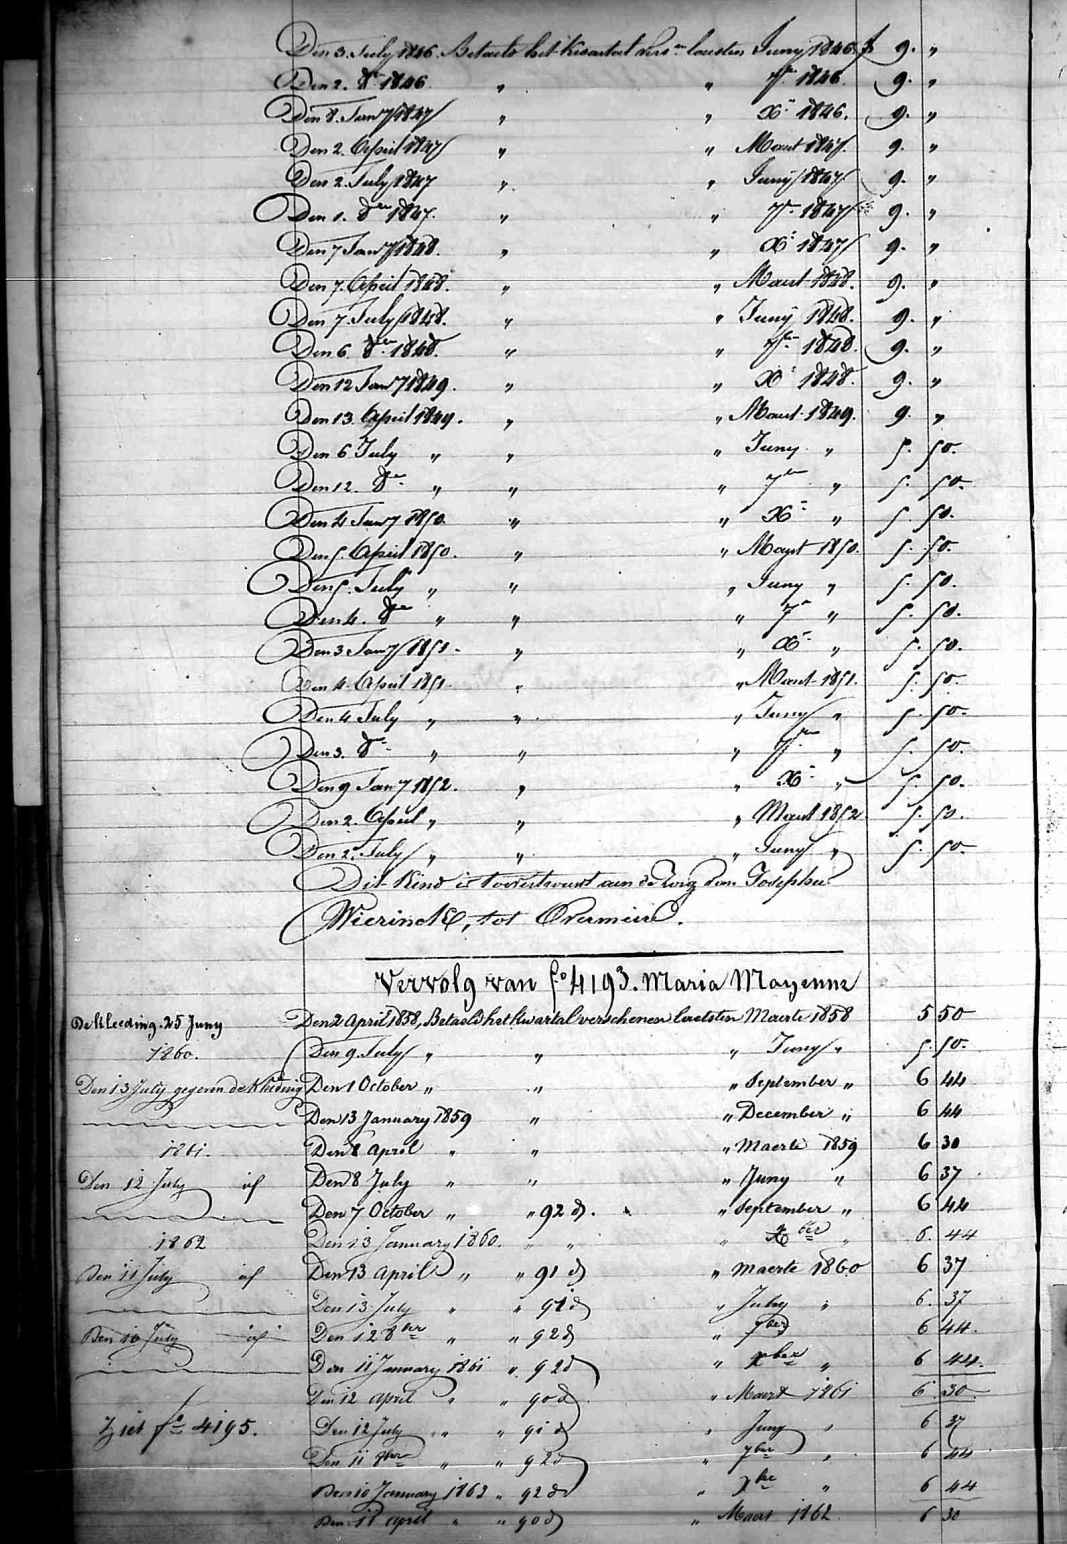 Den 3. July 1846. Betaelt het kwartael versn laesten Juny 1846. f 9. "
Den 2. 8er 1846. " " 7er 1846. 9. "
Den 8. Jany 1847 " " Xr 1846. 9. "
Den 2. April 1847 " " Maert 1847. 9. "
Den 2. July 1847 " " Juny 1847 9. "
Den 1. 8er 1847. " " 7r 1847 9. "
Den 7 Jany 1848. " " Xr 1847 9. "
Den 7. April 1848. " " Maert 1848. 9. "
Den 7. July 1848. " " Juny 1848. 9. "
Den 6. 8er 1848. " " 7er 1848. 9. "
Den 12 Jany 1849. " " Xr 1848. 9. "
Den 13. April 1849. " " Maert 1849. 9. "
Den 6 July " " " Juny " 5. 50.
Den 12. 8er " " " 7er " 5. 50.
Den 4 Jany 1850. " " Xr " 5. 50.
Den 5. April 1850. " " Maert 1850. 5. 50.
Den 5. July " " " Juny " 5. 50.
Den 4. 8er " " " 7r " 5. 50.
Den 3 Jany 1851. " " Xr " 5. 50.
Den 4. April 1851. " " Maert 1851. 5. 50.
Den 4 July " " " Juny " 5. 50.
Den 3. 8r " " " 7er " 5. 50.
Den 9 Jany 1852. " " Xr " 5. 50.
Den 2. April " " " Maert 1852 5. 50.
Den 2. July " " " Juny " 5. 50.
Dit Kind is toevertrouwt aen de zorg van Josephus
Wierinck, tot Overmeire.
Vervolg van fo 4193. Maria Mayenne
De Kleeding. 25 Juny Den 2 April 1858, Betaeld het kwartal verschenen laetsten Maerte 1858 5 50
1860. Den 9 July " " " Juny " 5. 50.
Den 13 July gegeven de Kleding Den 1 October " " " September " 6 44
Den 13 January 1859 " " December " 6 44
1861. Den 8 April " " " Maerte 1859 6 30
Den 12 July id Den 8 July " " " Juny " 6 37
Den 7 October " " 92 d. " September " 6 44
1862 Den 13 January 1860. " " " Xber " 6. 44
Den 11 July id Den 13 April " " 91 d " maerte 1860 6 37
Den 13 July " " 91 d " July " 6. 37
Den 10 July id Den 12 8ber " " 92 d " 7ber 6 44.
Den 11 January 1861 " 92 d " Xber " 6 44.
Den 12 april " " 90 d " Maert 1861 6 30
Ziet fo 4195. Den 12 July " " 91 d " Juny " 6 37
Den 11 8ber " " 92 d " 7ber " 6 44
Den 10 January 1862 " 92 d " Xbre " 6 44
Den 11 april " " 90 d " Maert 1862 6 30